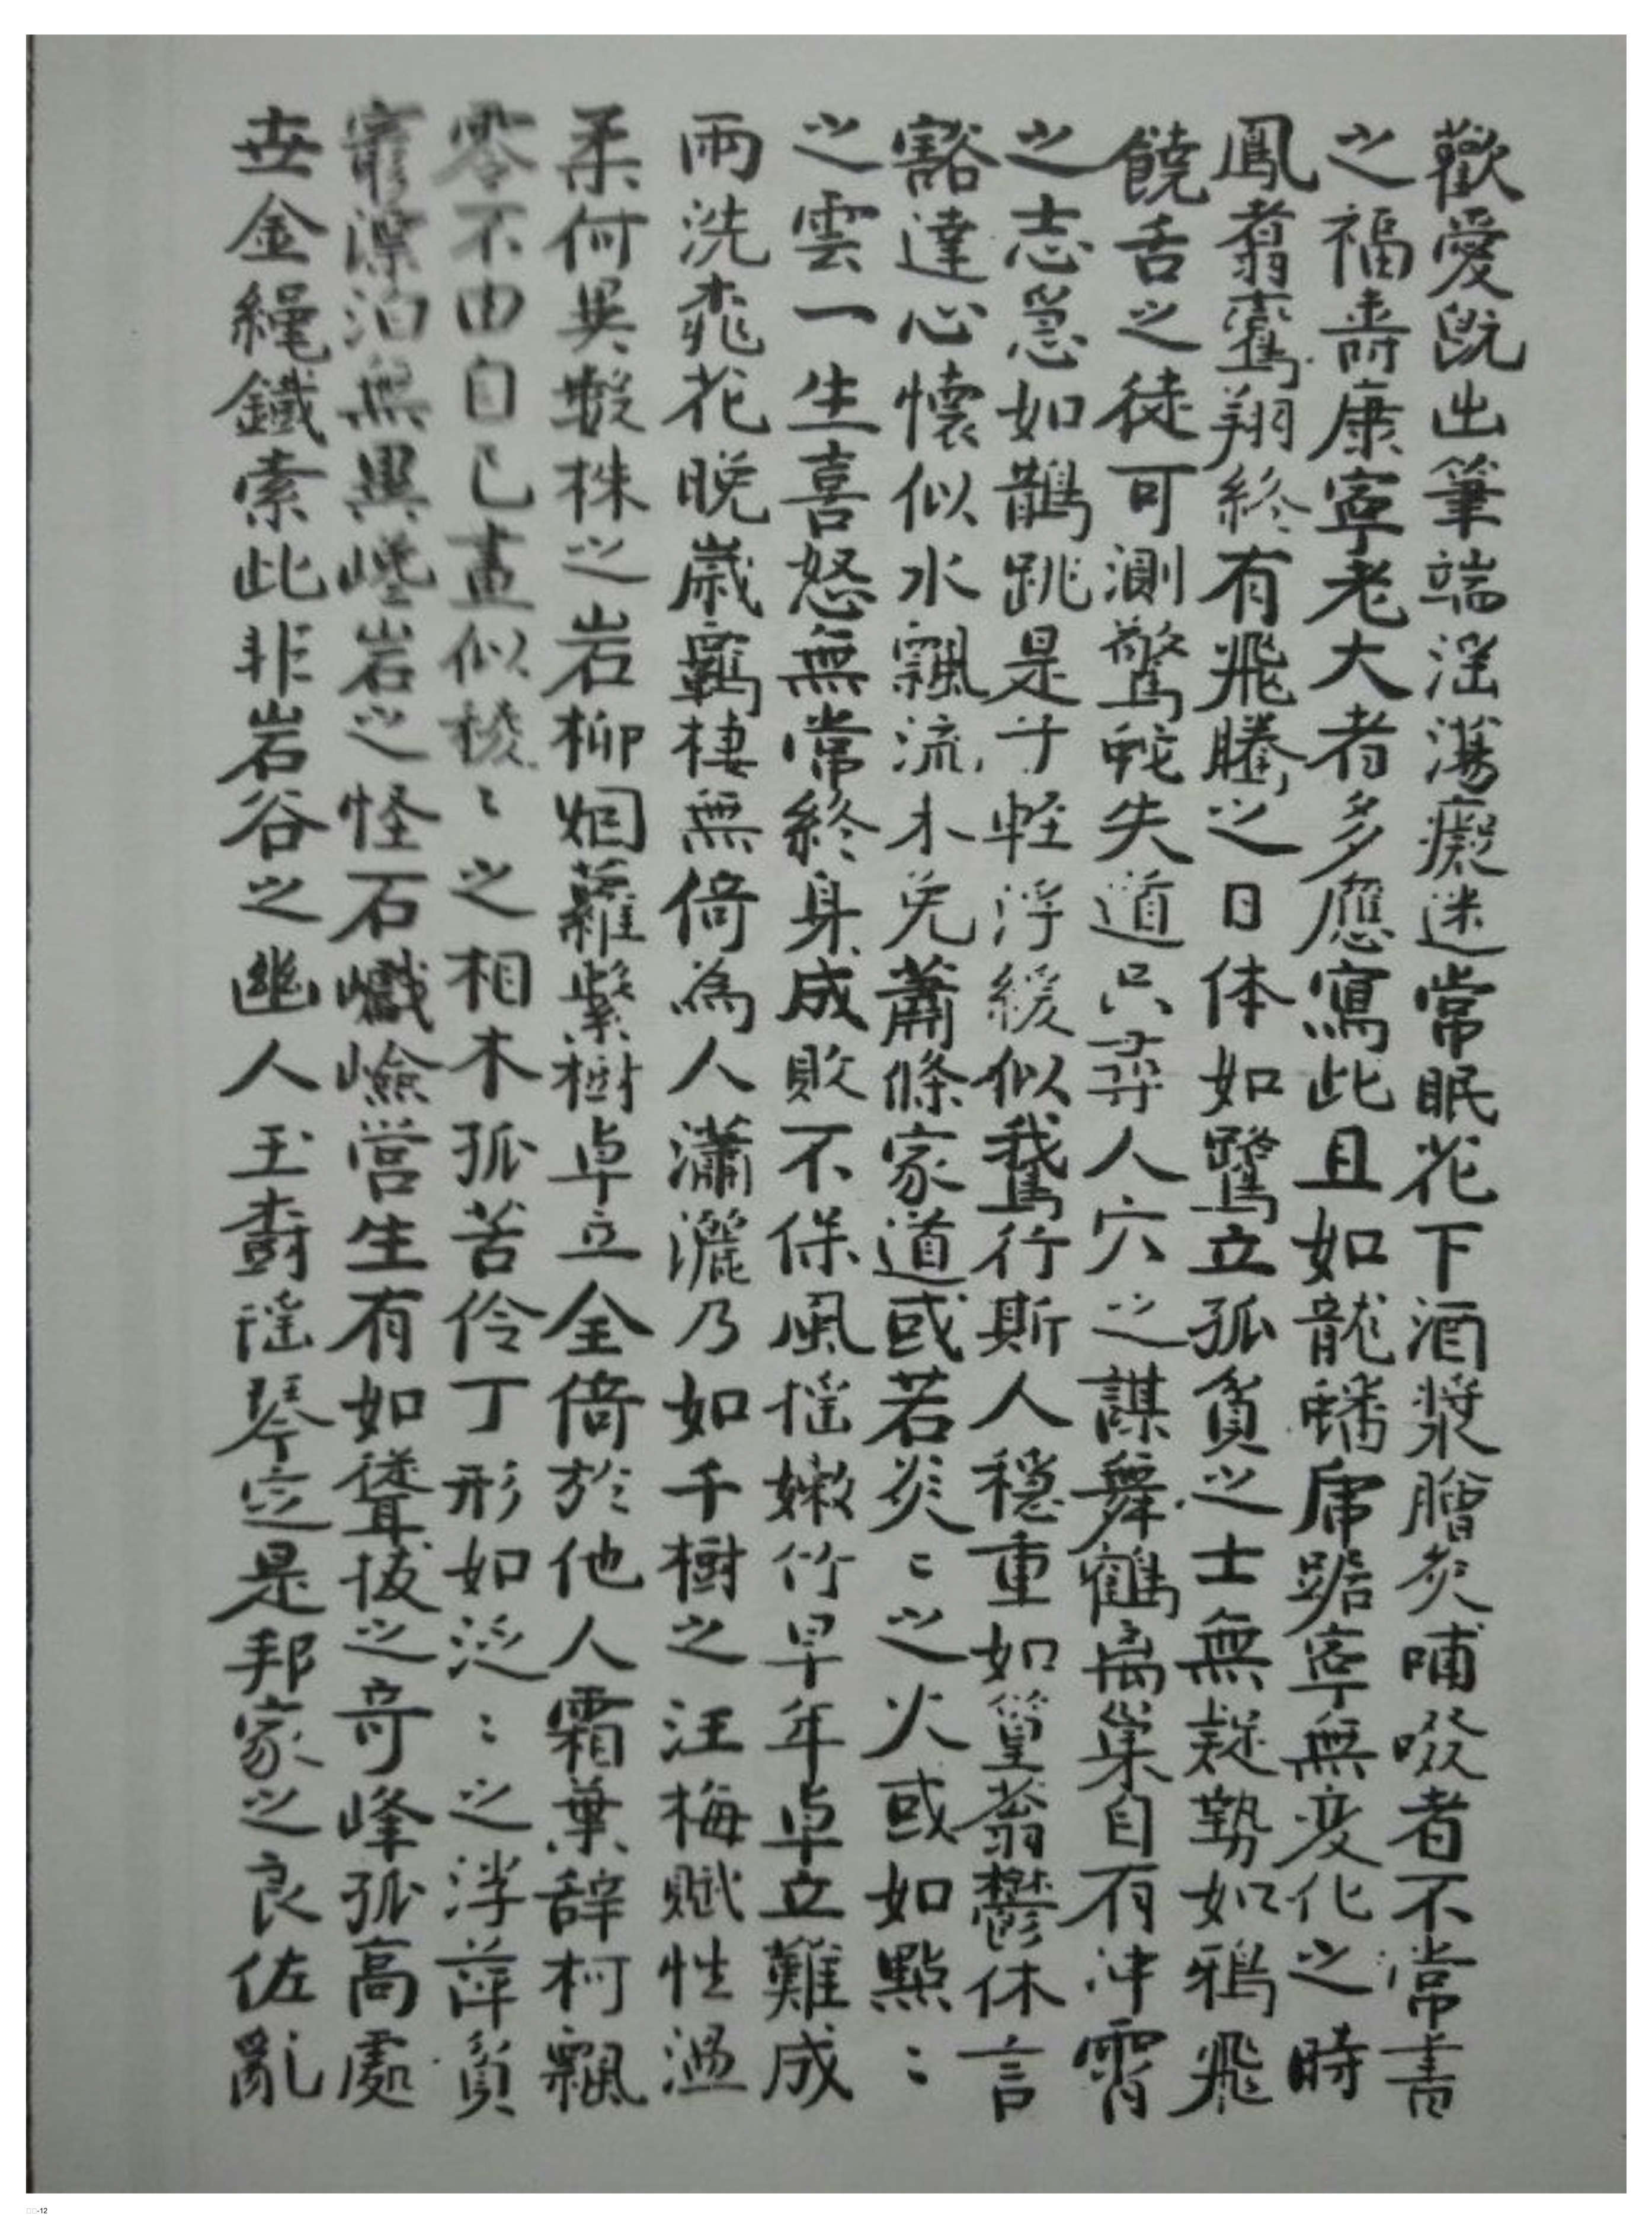 歡愛既出筆端滛蕩癡迷常眠花下酒漿膾炙哺啜者不常書
之福壽康寧老大者多應寫此且如龍蟠虎踞寧無変化之時
鳳翥鸞翔終有飛騰之日体如鷺立孤貧之士無疑勢如鴉飛
饒舌之徒可測驚蛇失道只尋人穴之謀舞鶴离巢自有冲霄
之志急如鵲跳是于輕浮緩似鵞行斯人穏重如篁蓊鬱休言
豁達心懷似水飄流木免蕭條家道或若炎〻之火或如點〻
之雲一生喜怒無常終身成敗不保風揺嫩竹早年卓立難成
雨洗桃花晚歳羈棲無倚為人瀟灑乃如千樹之汪梅賦性温
柔何異數株之岩柳烟蘿縈樹卓立全倚於他人霜葉辞柯飄
零不由自己畫似稜〻之相木孤苦伶丁形如泛〻之浮萍貧
窮漂泊無異𡺲岩之怪石巇嶮営生有如聳拔之竒峰孤高處
丗金繩鐵索此非岩谷之幽人玉𤔡謡琴定是邦家之良佐亂